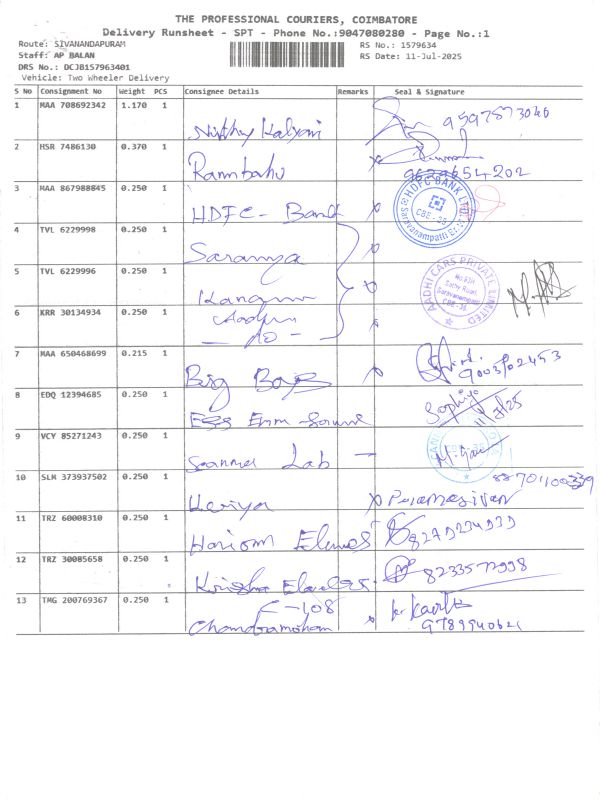 THE PROFESSIONAL COURIERS, COIMBATORE
Delivery Runsheet - SPT - Phone No.:9047080280 - Page No.:1
Route: SIVANANDAPURAM
RS No.: 1579634
Staff: AP BALAN
RS Date: 11-Jul-2025
DRS No.: DCJB157963401
Vehicle: Two Wheeler Delivery
S No Consignment No Weight PCS Consignee Details Remarks Seal & Signature
1 MAA 708692342 1.170 1 Nithy Kalyani
2 HSR 7486130 0.370 1 Rambabu
9629654202
3 MAA 867988845 0.250 1 HDFC - Bank HDFC BANK LTD. CBE-35
4 TVL 6229998 0.250 1 Saranya
5 TVL 6229996 0.250 1 AADHI CARS PRIVATE LIMITED Sathy Road Saravanampatti CBE-35
6 KRR 30134934 0.250 1 - do -
7 MAA 650468699 0.215 1 Big Boys
8 EDQ 12394685 0.250 1 Sophiya
11/7/25
9 VCY 85271243 0.250 1 Lab - CBE-35
10 SLM 373937502 0.250 1 Paramasivan
11 TRZ 60008310 0.250 1 Hariom
12 TRZ 30085658 0.250 1 Krisha 8233577998
13 TMG 200769367 0.250 1 F-108
Chandramohan